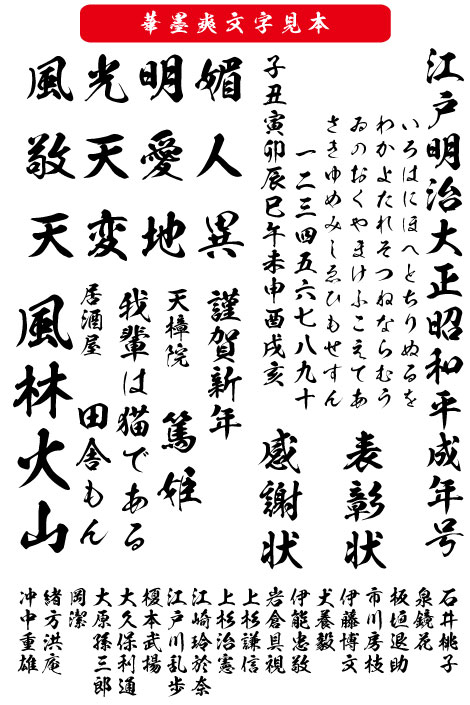 華墨爽文字見本
江戸明治大正昭和平成年号
いろはにほへとちりぬるを
わかよたれそつねならむう
ゐのおくやまけふこえてあ
さきゆめみしゑひもせすん
一二三四五六七八九十
子丑寅卯辰巳午未申酉戌亥
表彰状
感謝状
媚人異
明愛地
光天変
風敬天
謹賀新年
天樟院
篤姫
我輩は猫である
居酒屋
田舎もん
風林火山
石井桃子
泉鏡花
板垣退助
市川房枝
伊藤博文
犬養毅
伊能忠敬
岩倉具視
上杉謙信
上杉治憲
江崎玲於奈
江戸川乱歩
榎本武揚
大久保利通
大原孫三郎
岡潔
緒方洪庵
冲中重雄